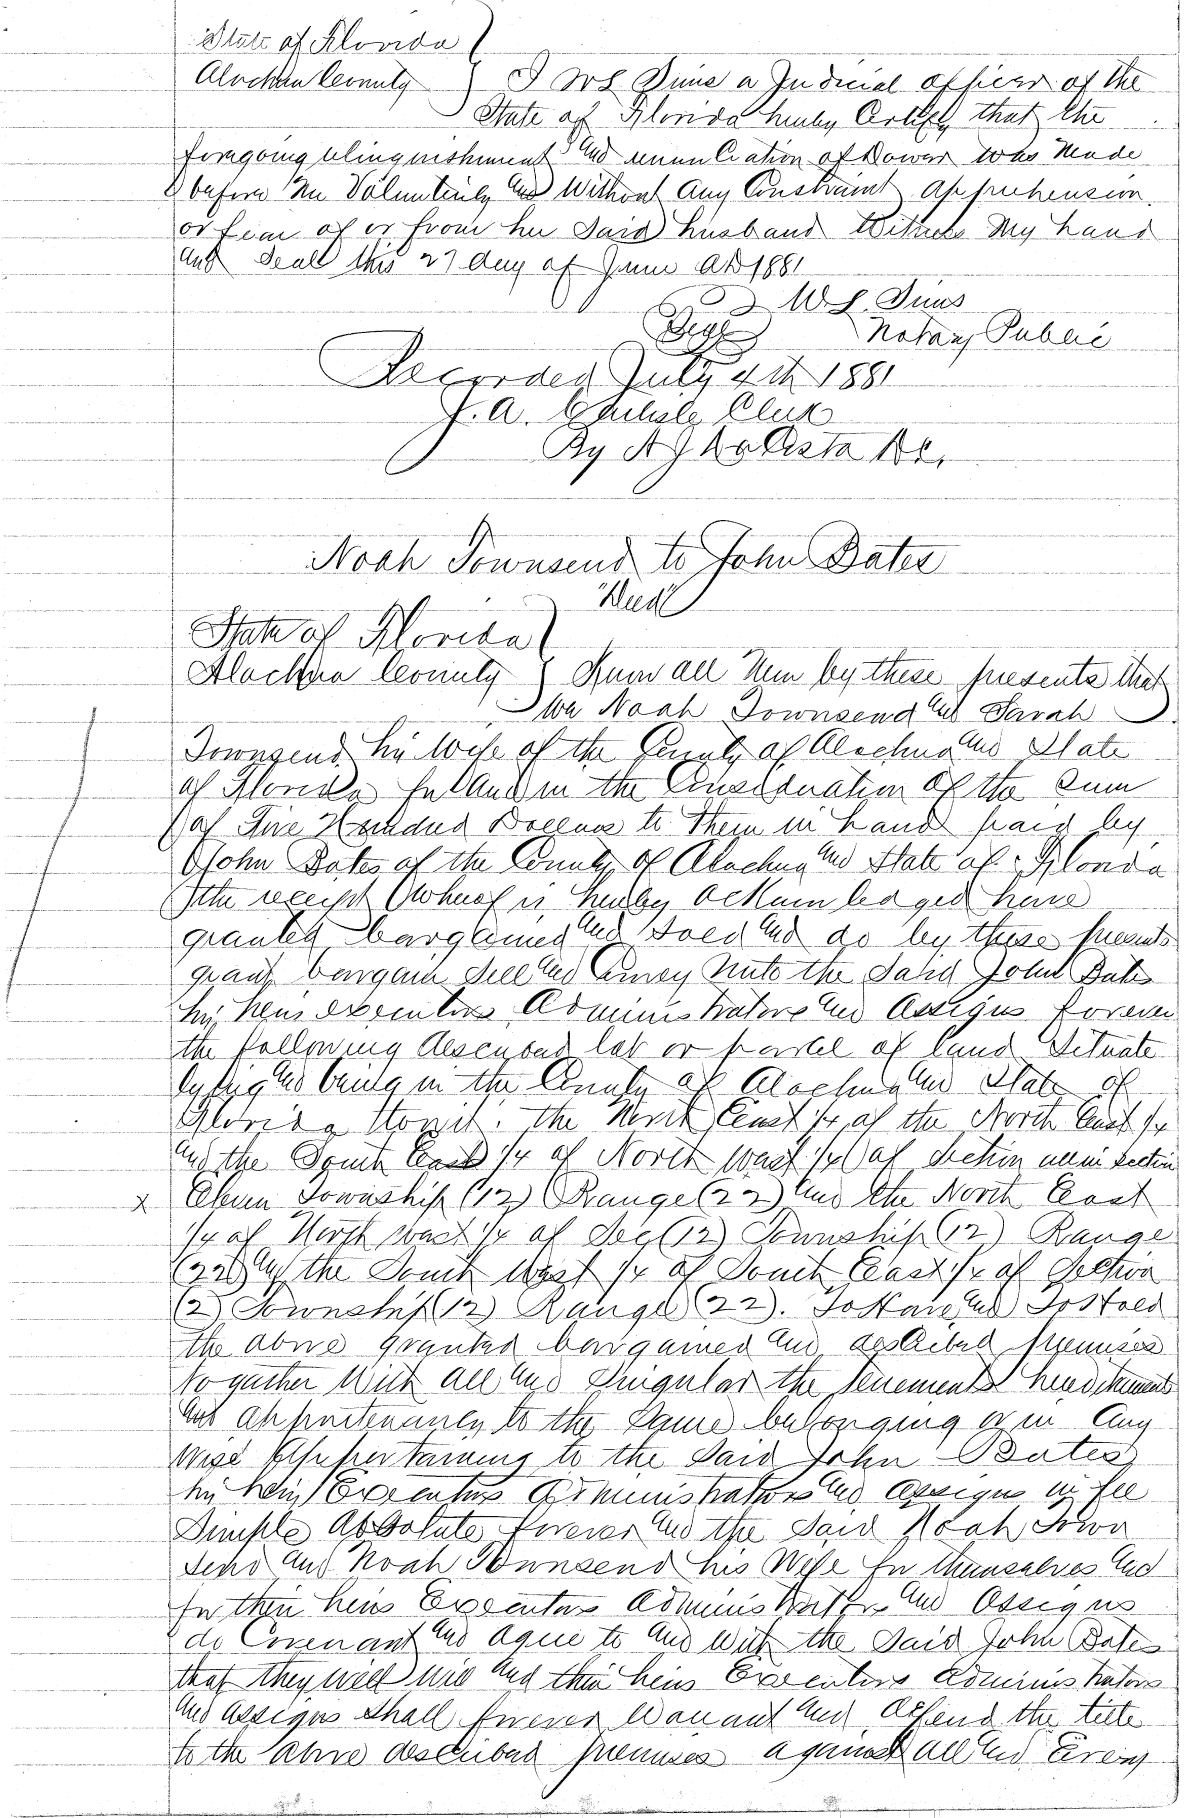 State of Florida
Alachua County } I W S Sims a Judicial officer of the
State of Florida hereby Certify that the
foregoing relinquishment and renunciation of Dower was Made
before Me Voluntarily and Without Any Constraint apprehension
or fear of or from her Said husband Witness My hand
and Seall this 27 day of June AD 1881
W. S. Sims
Seal Notary Public
Recorded July 4th 1881
J. A. Carlisle Clerk
By A J DaCosta DC.
Noah Townsend to John Bates
"Deed"
State of Florida
Alachua County } Know all Men by these presents that
We Noah Townsend and Sarah
Townsend his Wife of the County of Alachua and State
of Florida for And in the Consideration of the Sum
of Five Hundred Dollars to Them in hand paid by
John Bates of the County of Alachua and State of Florida
the receipt Whereof is hereby acknowledged have
granted bargained and Sold and do by these presents
grant bargain Sell and Convey Unto the Said John Bates
his heirs executors Administrators and Assigns forever
the following described lot or parcel of land Situate
lying and being in the County of Alachua and State of
Florida towit: the North East 1/4 of the North East 1/4
and the South East 1/4 of North West 1/4 of Section section
Eleven Township (12) Range (22) and the North East
1/4 of North west 1/4 of Sec (12) Township (12) Range
(22) and the South West 1/4 of South East 1/4 of Section
(2) Township (12) Range (22). To Have and To Hold
the above granted bargained and described premises
together With all and Singular the tenements hereditaments
and appurtenances to the Same belonging or in Any
wise Appertaining to the Said John Bates
his heirs Executors Administrators and assigns in fee
Simple Absolute forever and the Said Noah Town
send and Noah Townsend his Wife for themselves and
for their heirs Executors Administrators and Assigns
do Covenant and agree to and with the Said John Bates
that they will and their heirs Executors Administrators
and assigns Shall forever Warrant and defend the title
to the above described premises against all and Every